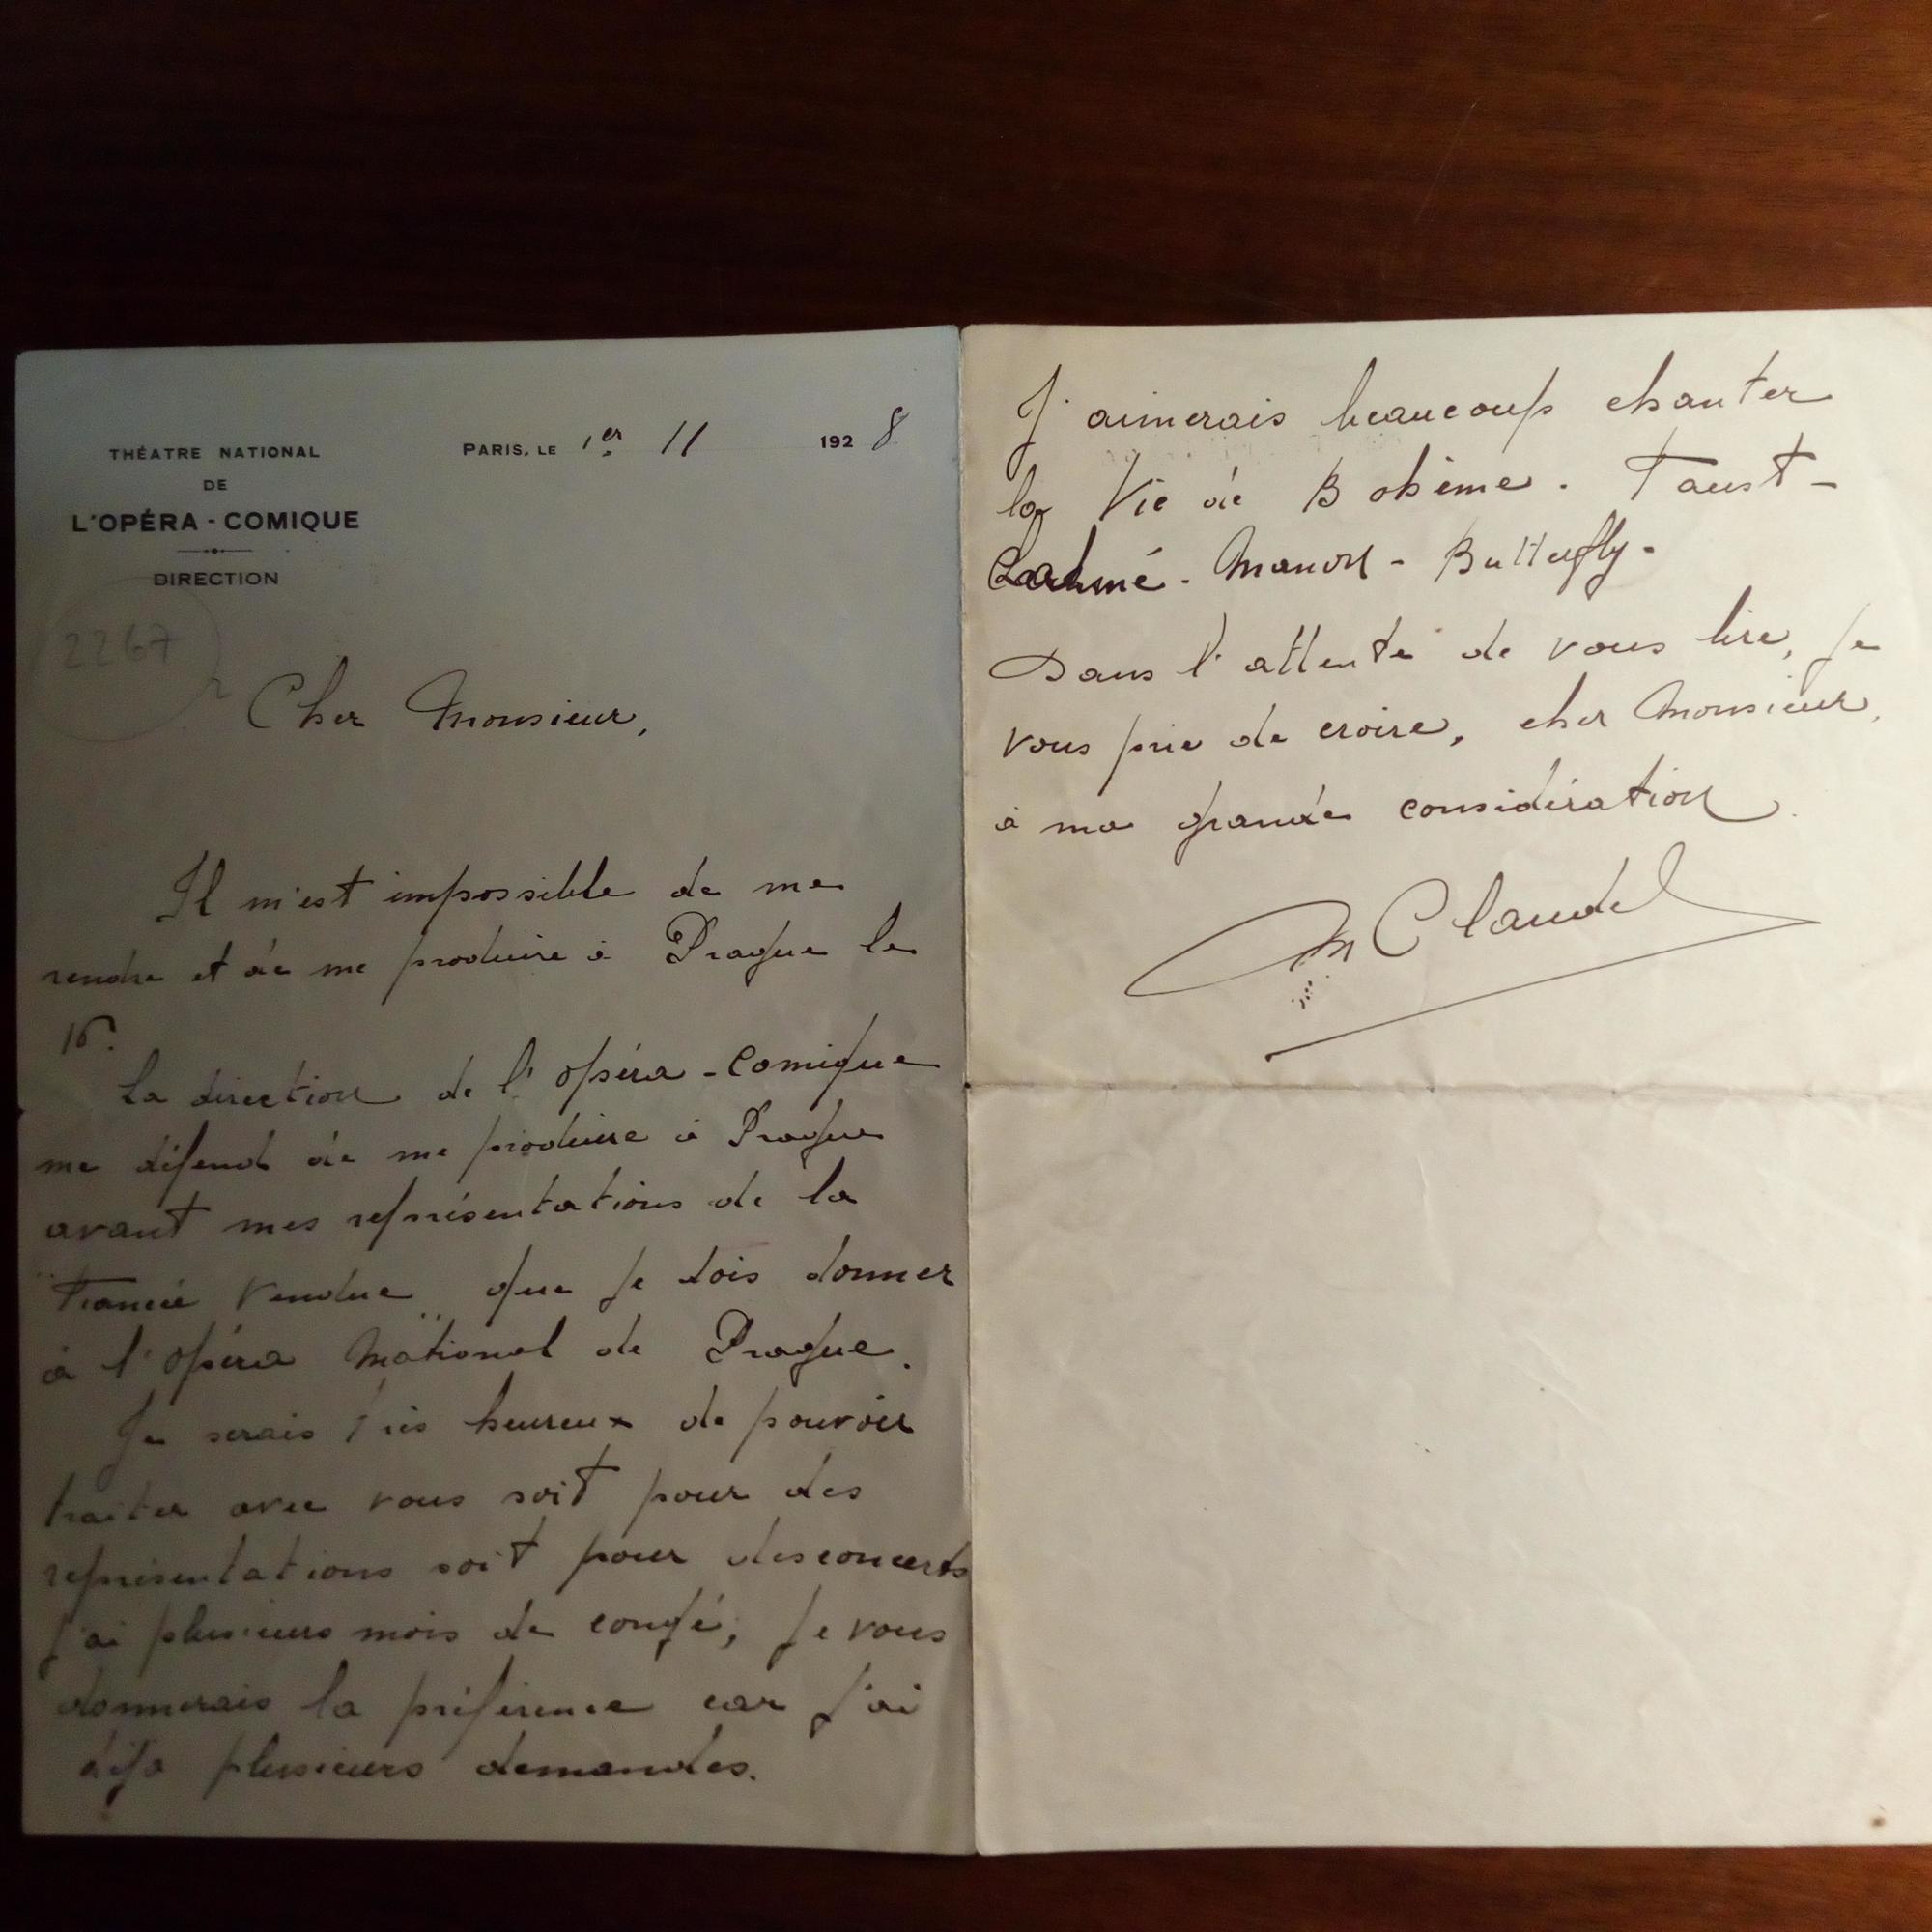 THÉATRE NATIONAL
DE
L'OPÉRA-COMIQUE
DIRECTION
PARIS, LE 1er 11 1928
2267
Cher Monsieur,
Il m'est impossible de me
rendre et de me produire à Prague le
La direction de l'opéra-comique
me défend de me produire à Prague
avant mes représentations de la
fiancée vendue que je dois donner
à l'opéra National de Prague.
Je serais très heureux de pouvoir
traiter avec vous soit pour des
représentations soit pour des concerts
j'ai plusieurs mois de congé, je vous
donnerais la préférence car j'ai
déjà plusieurs demandes.
J'aimerais beaucoup chanter
la Vie de Bohème. Faust -
Lakmé - Manon - Butterfly -
Dans l'attente de vous lire, je
vous prie de croire, cher Monsieur,
à ma grande considération
M Claudel